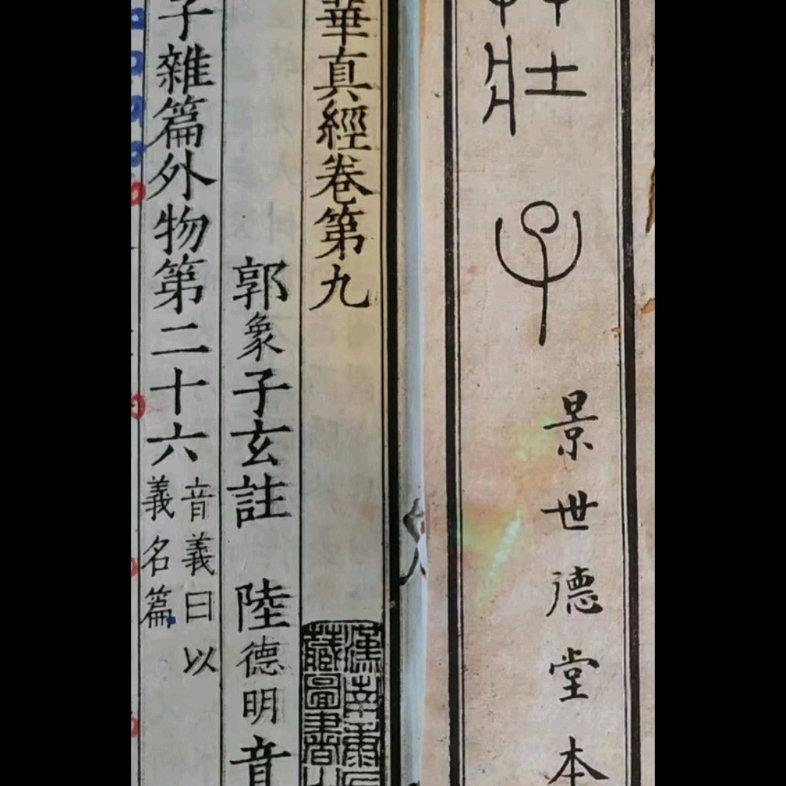 莊子
景世德堂本
華真經卷第九
郭象子玄註 陸德明音
子雜篇外物第二十六 音義曰以
義名篇